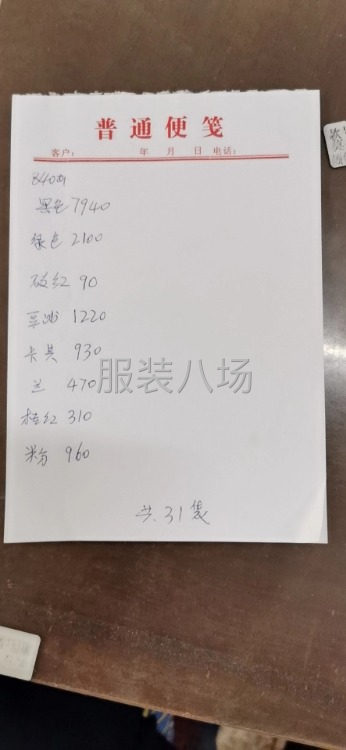 普通便笺
客户: 年 月 日 电话:
黑色 7940
绿色 2100
红 90
1220
卡其 930
兰 470
桔红 310
粉 960
服装八场
共 31